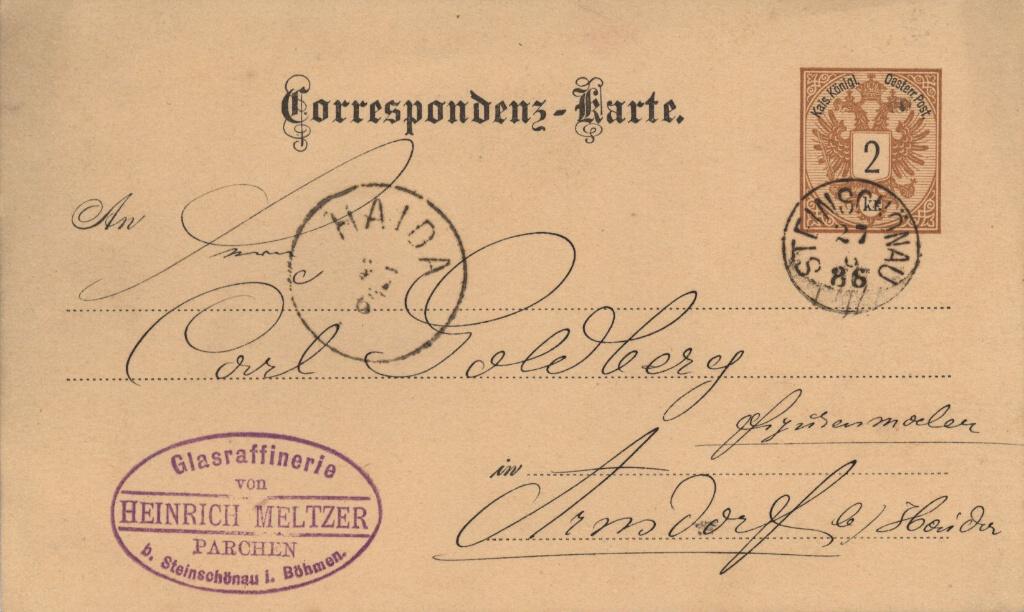 Correspondenz-Karte.
Kais. Königl. Oesterr. Post.
2
kr.
STEINSCHÖNAU
27
9
86
HAIDA
An Herrn
Carl Goldberg
Figurenmaler
in Arnsdorf b/ Haida
Glasraffinerie
von
HEINRICH MELTZER
PARCHEN
b. Steinschönau i. Böhmen.